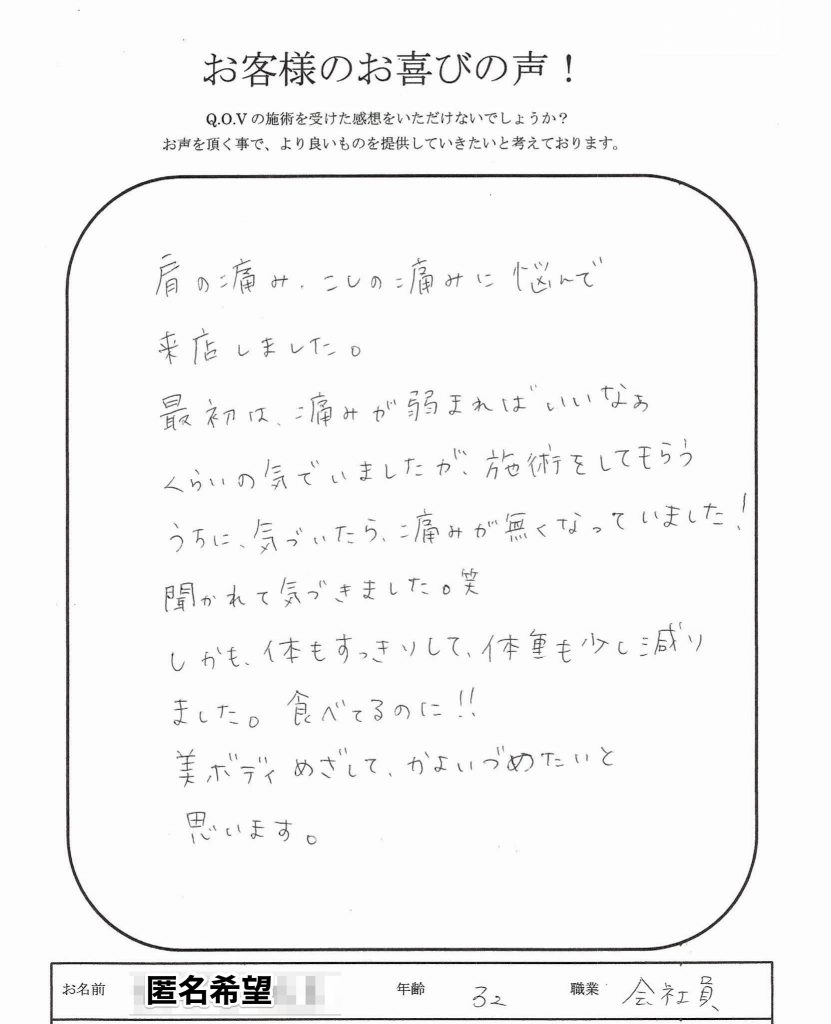 お客様のお喜びの声！
Q.O.Vの施術を受けた感想をいただけないでしょうか？
お声を頂く事で、より良いものを提供していきたいと考えております。
肩の痛み、こしの痛みに悩んで
来店しました。
最初は、痛みが弱まればいいなぁ
くらいの気でいましたが、施術をしてもらう
うちに、気づいたら、痛みが無くなっていました！
聞かれて気づきました。笑
しかも、体もすっきりして、体重も少し減り
ました。食べてるのに!!
美ボディめざして、かよいづめたいと
思います。
お名前 匿名希望 年齢 32 職業 会社員